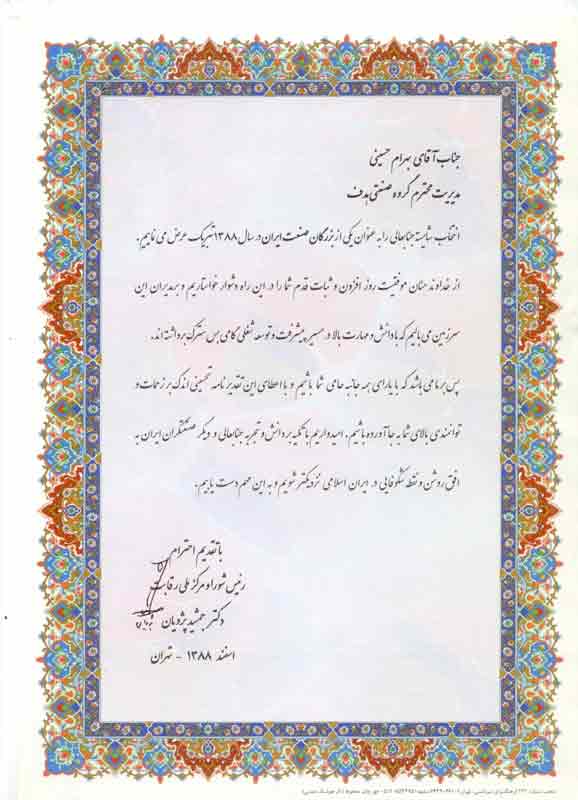 جناب آقای بهرام حسینی
مدیریت محترم گروه صنعتی هدف
انتخاب شایسته جنابعالی را به عنوان یکی از بزرگان صنعت ایران در سال ۱۳۸۸ تبریک عرض می نماییم.
از خداوند منان موفقیت روز افزون و ثبات قدم شما را در این راه دشوار خواستاریم و بر مدیران این
سرزمین می بالیم که با دانش و مهارت بالا در مسیر پیشرفت و توسعه شغلی گامی بس سترگ برداشته اند.
پس بر ما می باشد که با یارای همه جانبه حامی شما باشیم و با اعطای این تقدیر نامه تحسینی اندک بر زحمات و
توانمندی بالای شما به جا آورده باشیم. امیدواریم با تکیه بر دانش و تجربه جنابعالی و دیگر صنعتگران ایران به
افق روشن و نقطه شکوفایی در ایران اسلامی نزدیکتر شویم و به این مهم دست یابیم.
با تقدیم احترام
رئیس شورا و مرکز ملی رقابت
دکتر جمشید پژویان
اسفند ۱۳۸۸ - تهران